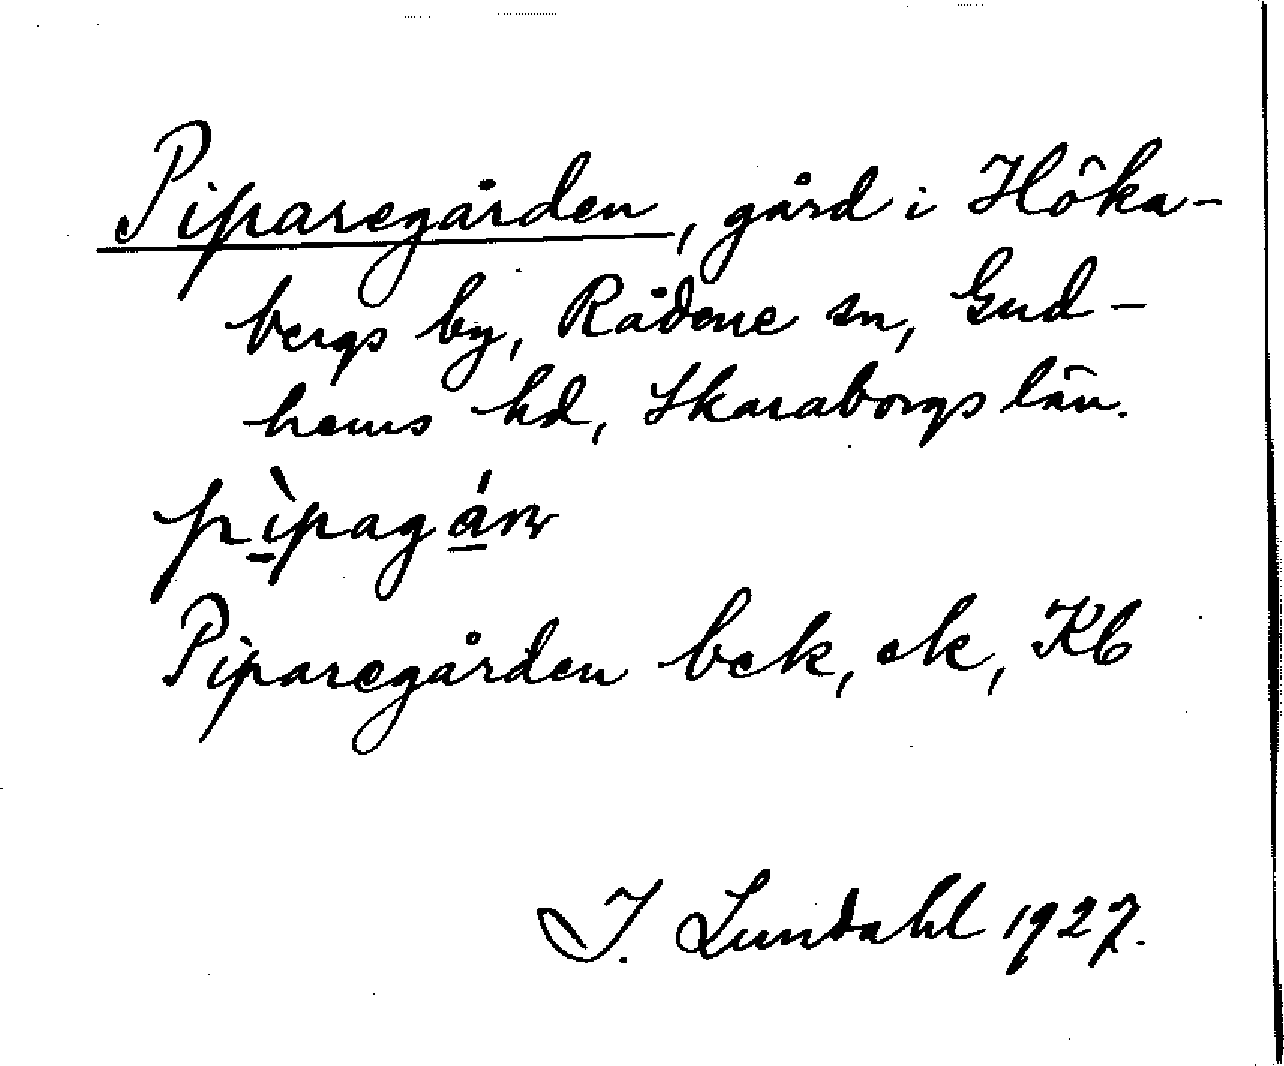 Piparegården, gård i Höka-
bergs by, Rådene sn, Gud-
hems hd, Skaraborgs län.
pìpagárn
Piparegården bek, ek, Kb
I. Lundahl 1927.